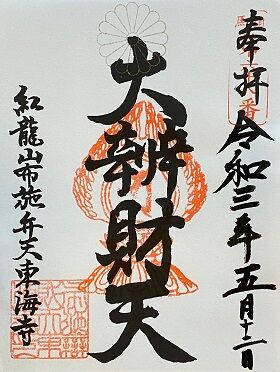 奉拝
令和三年五月十二日
大辨財天
紅龍山布施弁天東海寺